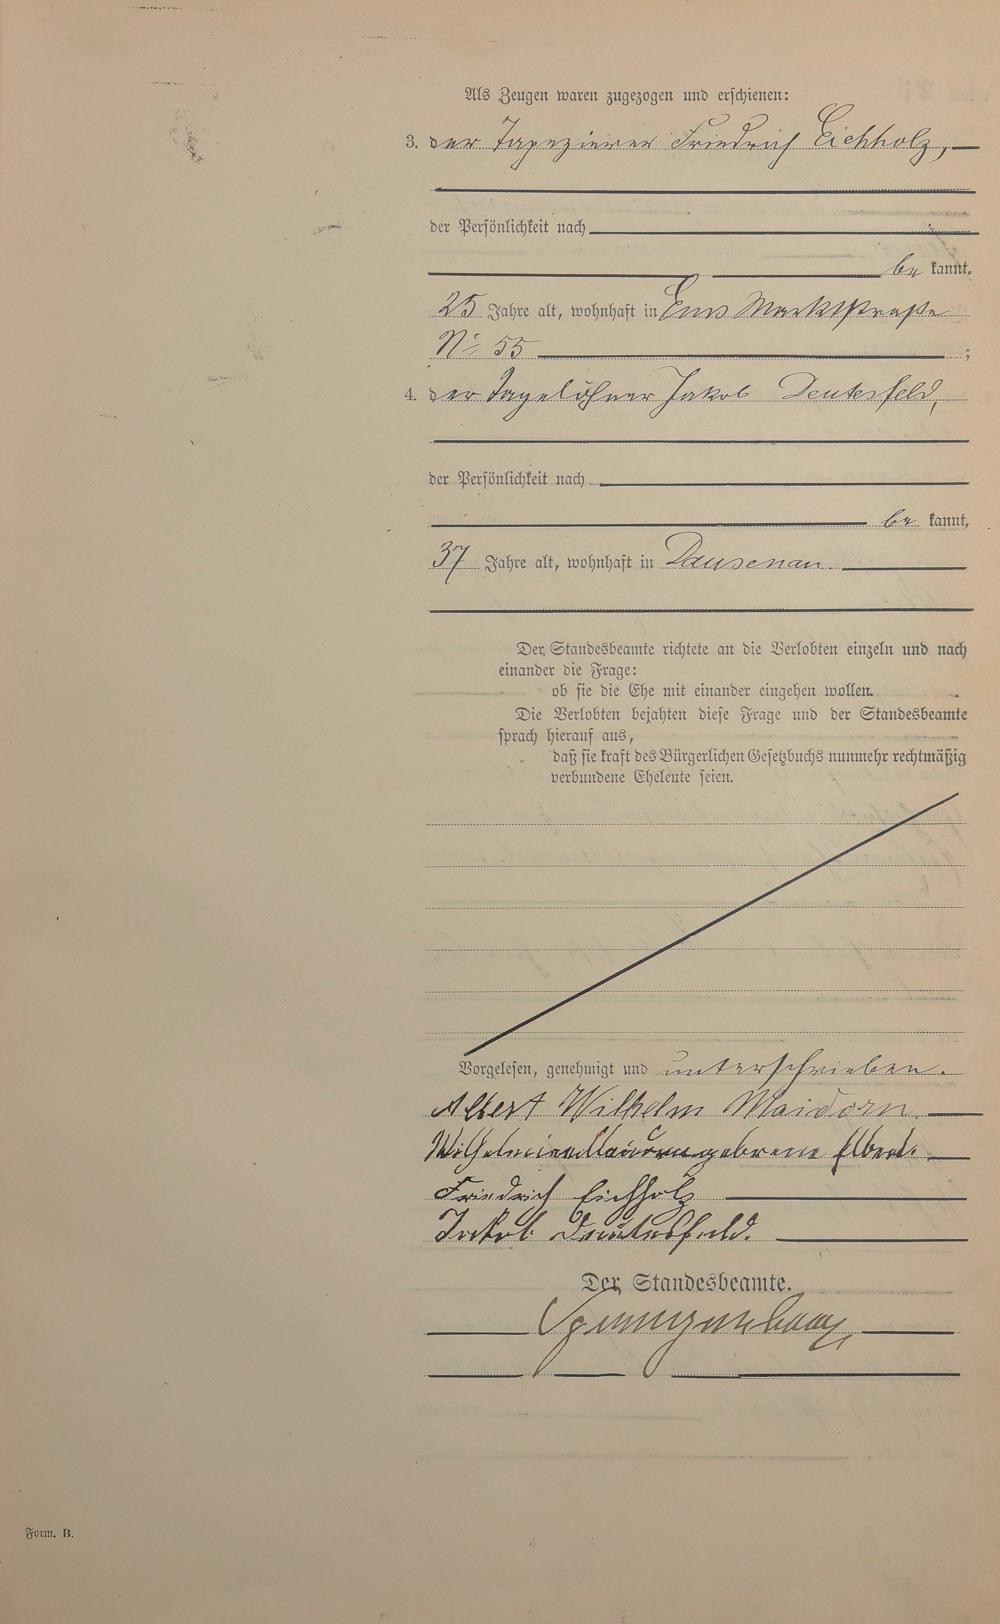 Als Zeugen waren zugezogen und erschienen:
3. der Tapezierer Friedrich Eichholz,
der Persönlichkeit nach
be kannt,
25 Jahre alt, wohnhaft in Ems Marktstraße
No 55 ;
4. der Tagelöhner Jakob Deutesfeld,
der Persönlichkeit nach
be kannt,
37 Jahre alt, wohnhaft in Dausenau.
Der Standesbeamte richtete an die Verlobten einzeln und nach
einander die Frage:
ob sie die Ehe mit einander eingehen wollen.
Die Verlobten bejahten diese Frage und der Standesbeamte
sprach hierauf aus,
daß sie kraft des Bürgerlichen Gesetzbuchs nunmehr rechtmäßig
verbundene Eheleute seien.
Vorgelesen, genehmigt und unterschrieben.
Albert Wilhelm Maidorn.
Wilhelmine Maidorn geborene Elbert.
Friedrich Eichholz
Jakob Deutesfeld.
Der Standesbeamte.
Form. B.